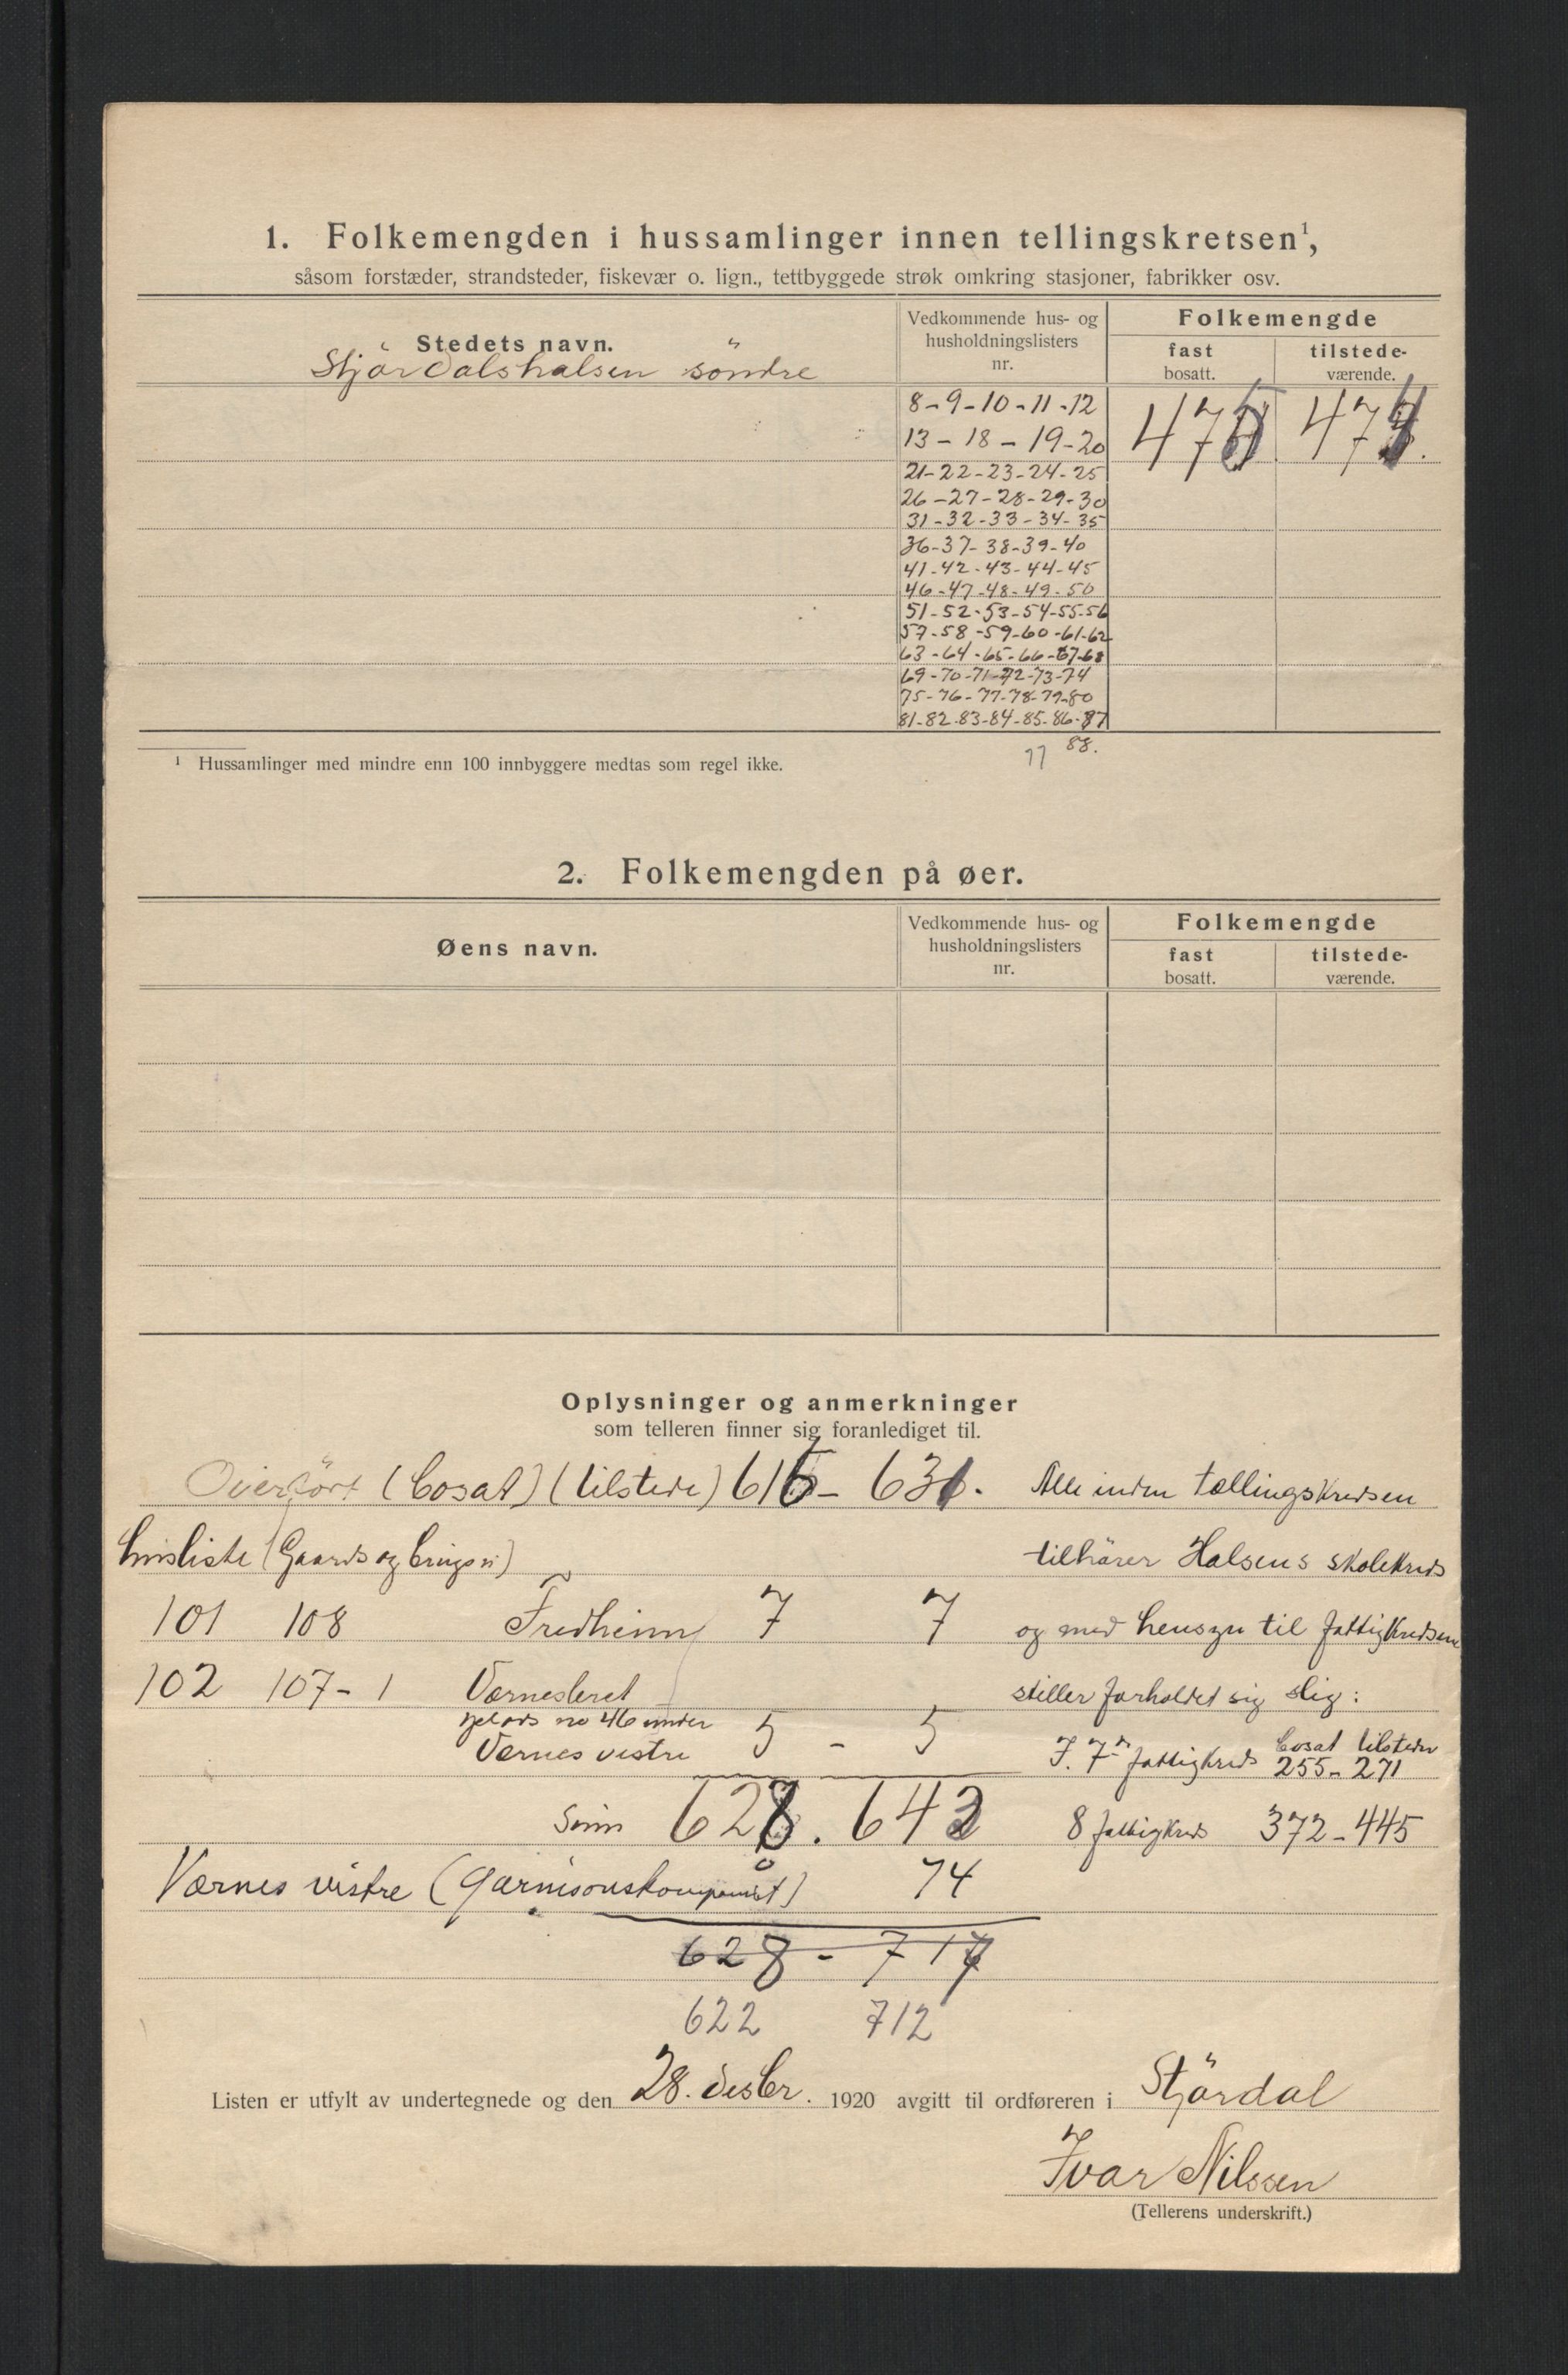 1. Folkemengden i hussamlinger innen tellingskretsen¹,
såsom forstæder, strandsteder, fiskevær o. lign., tettbyggede strøk omkring stasjoner, fabrikker osv.
Stedets navn.
Vedkommende hus- og
husholdningslisters
nr.
Folkemengde
fast
bosatt.
tilstede-
værende.
Stjördalshalsen söndre
8-9-10-11-12
13-18-19-20
475 474.
21-22-23-24-25
26-27-28-29-30
31-32-33-34-35
36-37-38-39-40
41-42-43-44-45
46-47-48-49-50
51-52-53-54-55-56
57-58-59-60-61-62
63-64-65-66-67-68
69-70-71-72-73-74
75-76-77-78-79-80
81-82-83-84-85-86-87
88.
77
¹ Hussamlinger med mindre enn 100 innbyggere medtas som regel ikke.
2. Folkemengden på øer.
Øens navn.
Vedkommende hus- og
husholdningslisters
nr.
Folkemengde
fast
bosatt.
tilstede-
værende.
Oplysninger og anmerkninger
som telleren finner sig foranlediget til.
Overfört (bosat) (tilstede) 616- 631.
Husliste (Gaards og brugsn)
101 108 Fredheim 7 7
102 107-1 Værnesleret
no 46 under
Værnes vestre 5 - 5
Sum 628. 643
Værnes vestre (Garnisonskompaniet) 74
628 - 717
622 712
Alle inden tællingskredsen
tilhörer Halsens skolekreds
og med hensyn til fattigkredsene
stiller forholdet sig slig:
I. 7de fattigkreds bosat tilstede
255-271
8 fattigkreds 372-445
Listen er utfylt av undertegnede og den 28. desbr. 1920 avgitt til ordføreren i Stjördal
Ivar Nilssen
(Tellerens underskrift.)